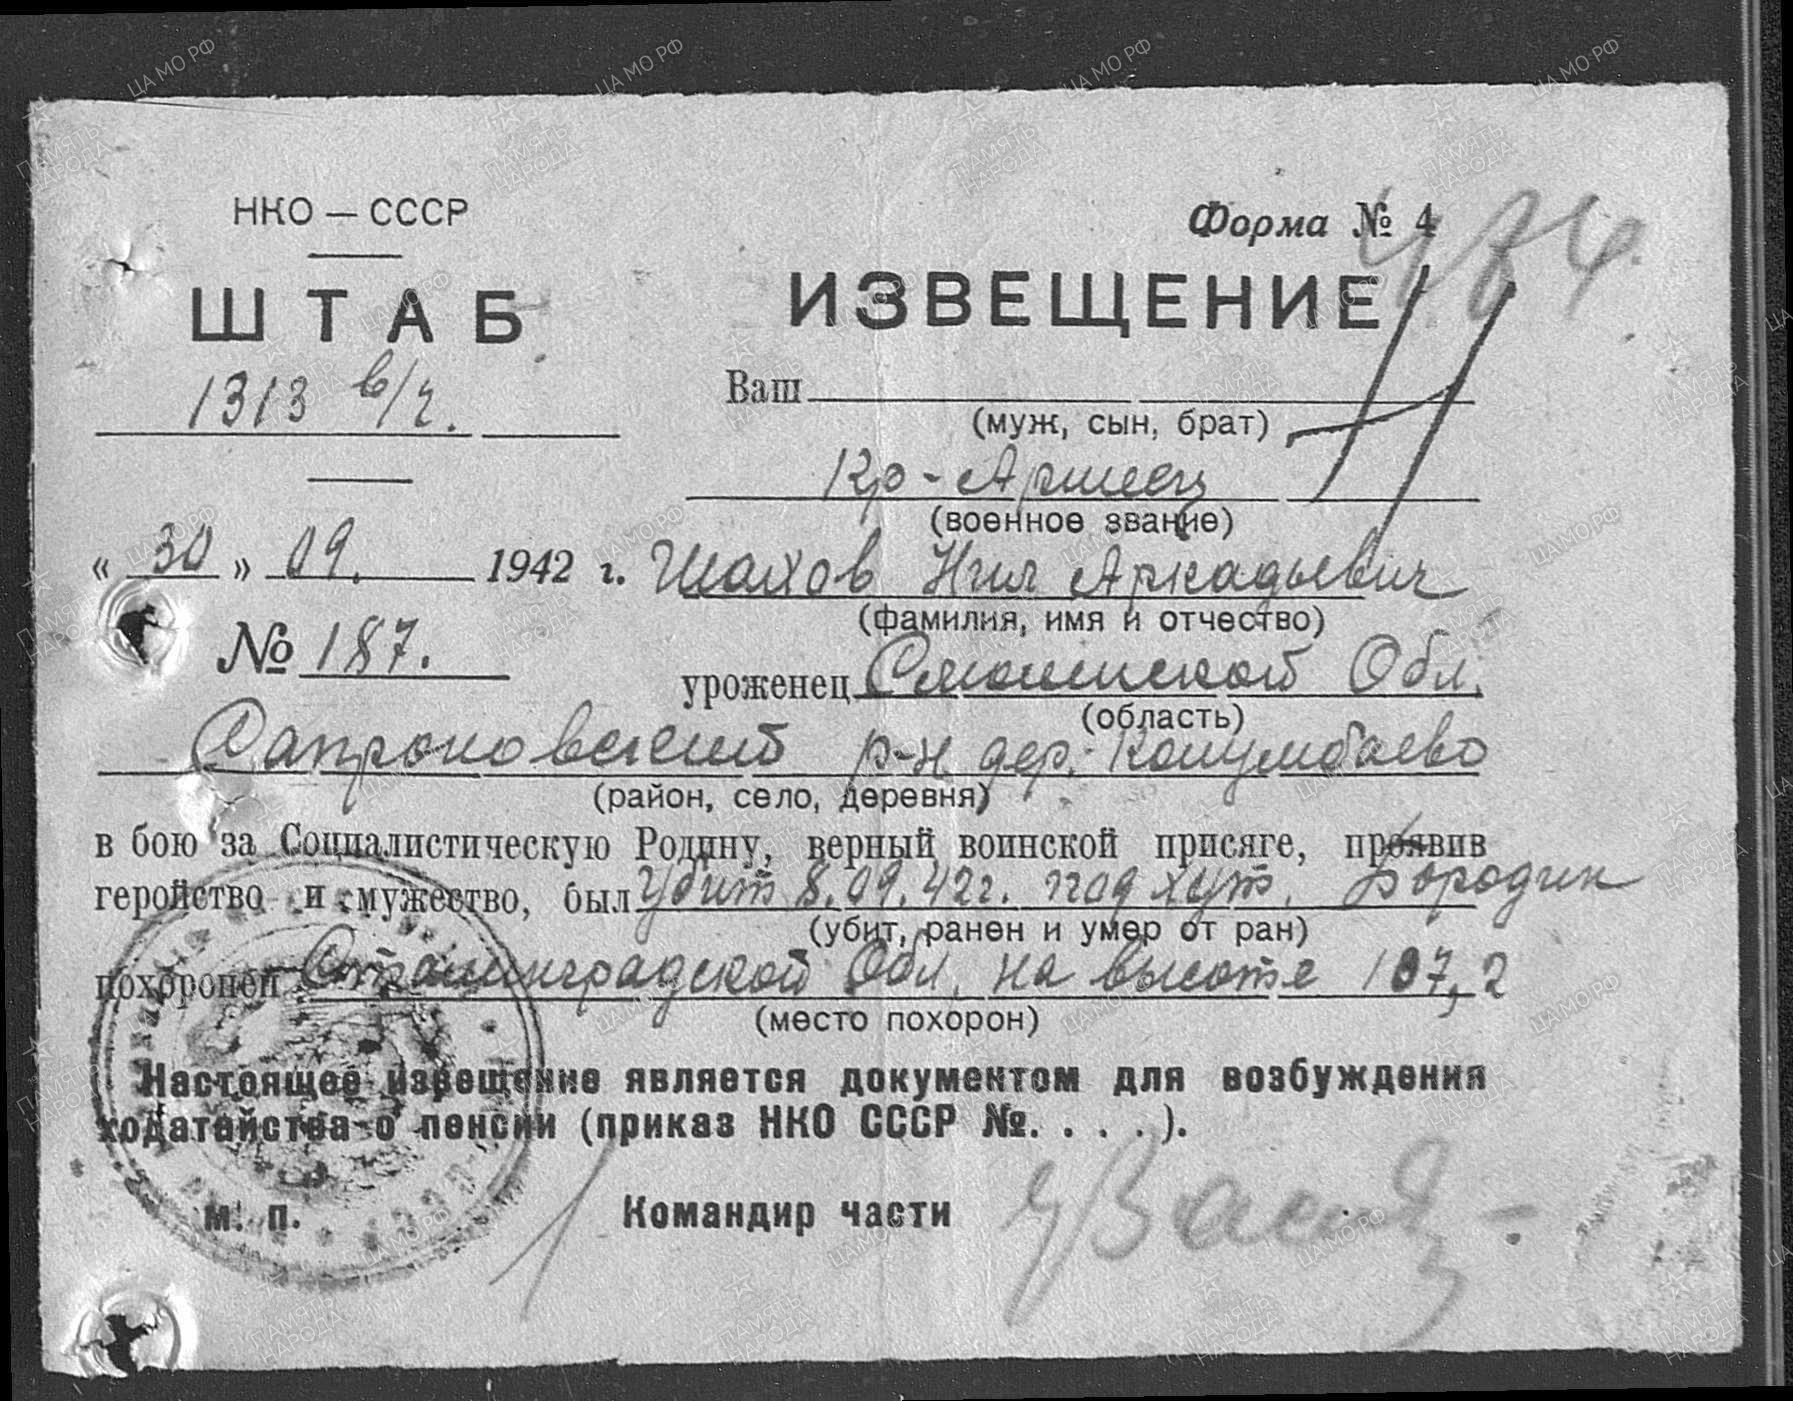 НКО — СССР
Форма № 4
ШТАБ
ИЗВЕЩЕНИЕ
1313 в/ч.
Ваш
(муж, сын, брат)
Кр-Армеец
(военное звание)
« 30 » 09. 1942 г.
Шахов Нил Аркадьевич
(фамилия, имя и отчество)
№ 187.
уроженец Смоленской Обл.
(область)
р-н дер.
(район, село, деревня)
в бою за Социалистическую Родину, верный воинской присяге, проявив
геройство и мужество, был убит 8.09.42г. под хут. Бородин
(убит, ранен и умер от ран)
похоронен Сталинградской Обл. на высоте 107,2
(место похорон)
Настоящее извещение является документом для возбуждения
ходатайства о пенсии (приказ НКО СССР №. . . . ).
М. П.
Командир части
ЦАМО РФ
ПАМЯТЬ НАРОДА